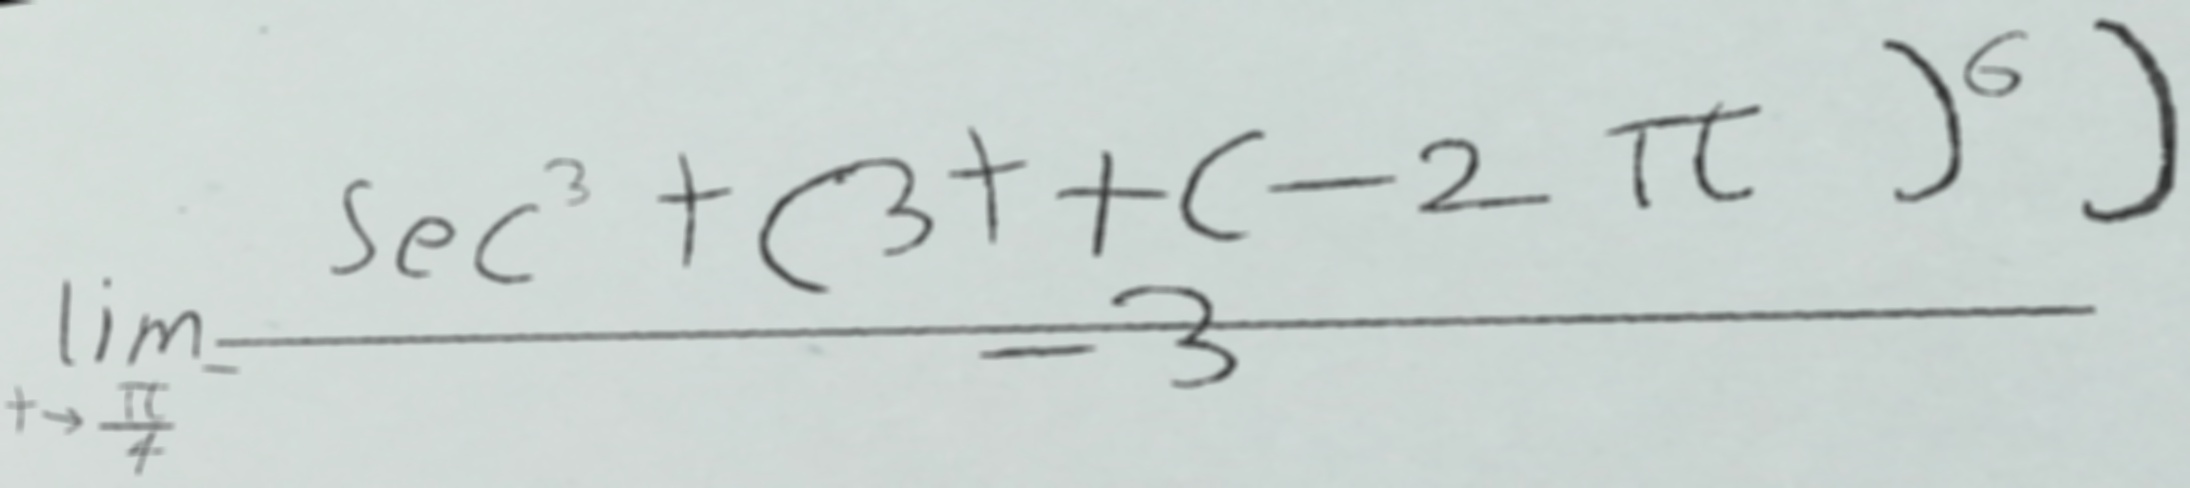 \lim_{t \to \frac{\pi}{4}^-} \frac{\sec^3 t (3t + (-2\pi)^6)}{-3}